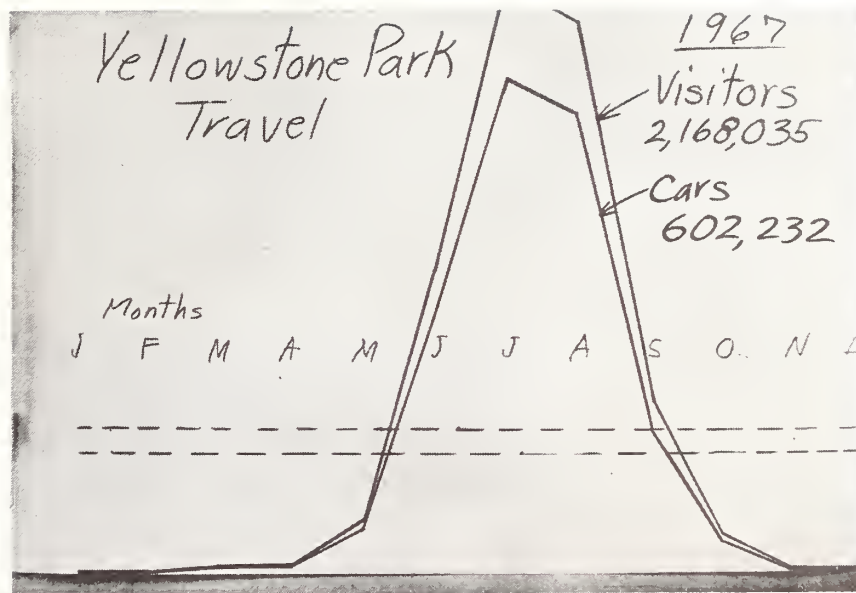 Yellowstone Park
Travel
1967
Visitors
2,168,035
Cars
602,232
Months
J F M A M J J A S O N